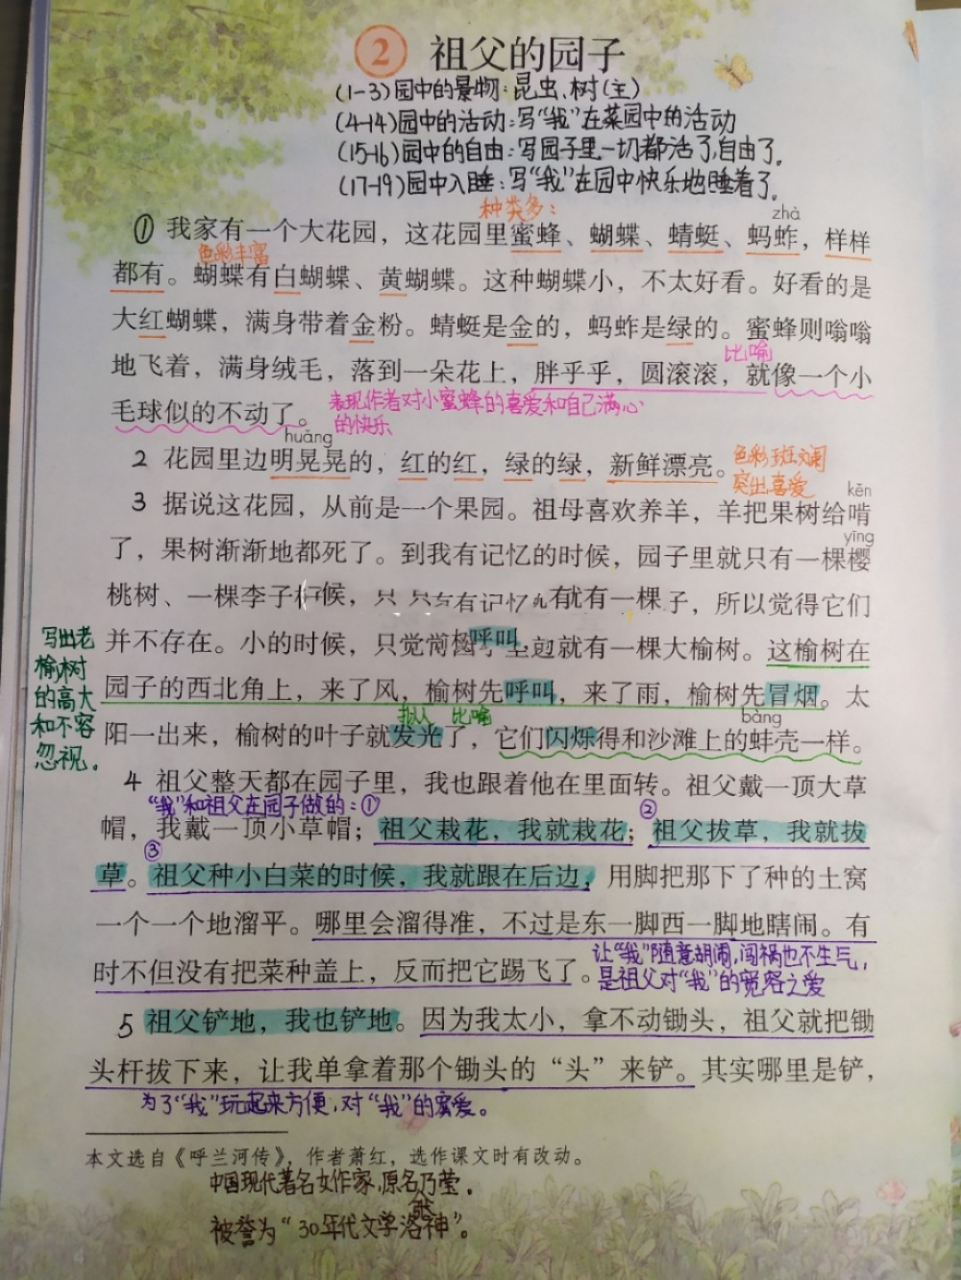 2 祖父的园子
(1-3)园中的景物:昆虫、树(主)
(4-14)园中的活动:写“我”在菜园中的活动
(15-16)园中的自由:写园子里一切都活了,自由了。
(17-19)园中入睡:写“我”在园中快乐地睡着了。
种类多:
zhà
① 我家有一个大花园，这花园里蜜蜂、蝴蝶、蜻蜓、蚂蚱，样样
色彩丰富
都有。蝴蝶有白蝴蝶、黄蝴蝶。这种蝴蝶小，不太好看。好看的是
大红蝴蝶，满身带着金粉。蜻蜓是金的，蚂蚱是绿的。蜜蜂则嗡嗡
比喻
地飞着，满身绒毛，落到一朵花上，胖乎乎，圆滚滚，就像一个小
毛球似的不动了。
表现作者对小蜜蜂的喜爱和自己满心
的快乐
huǎng
2 花园里边明晃晃的，红的红，绿的绿，新鲜漂亮。
色彩斑斓
突出喜爱
kěn
3 据说这花园，从前是一个果园。祖母喜欢养羊，羊把果树给啃
yīng
了，果树渐渐地都死了。到我有记忆的时候，园子里就只有一棵樱
桃树、一棵李子 候，只 有记忆 有就有一棵子，所以觉得它们
并不存在。小的时候，只觉 呼叫 边就有一棵大榆树。这榆树在
园子的西北角上，来了风，榆树先呼叫，来了雨，榆树先冒烟。太
拟人 比喻
bàng
阳一出来，榆树的叶子就发光了，它们闪烁得和沙滩上的蚌壳一样。
写出老
榆树
的高大
和不容
忽视。
4 祖父整天都在园子里，我也跟着他在里面转。祖父戴一顶大草
“我”和祖父在园子做的:① ②
帽，我戴一顶小草帽；祖父栽花，我就栽花；祖父拔草，我就拔
③
草。祖父种小白菜的时候，我就跟在后边，用脚把那下了种的土窝
一个一个地溜平。哪里会溜得准，不过是东一脚西一脚地瞎闹。有
时不但没有把菜种盖上，反而把它踢飞了。
让“我”随意胡闹,闯祸也不生气,
是祖父对“我”的宽容之爱
5 祖父铲地，我也铲地。因为我太小，拿不动锄头，祖父就把锄
头杆拔下来，让我单拿着那个锄头的“头”来铲。其实哪里是铲，
为了“我”玩起来方便,对“我”的蜜爱。
本文选自《呼兰河传》，作者萧红，选作课文时有改动。
中国现代著名女作家,原名乃莹。
被誉为“30年代文学洛神”。